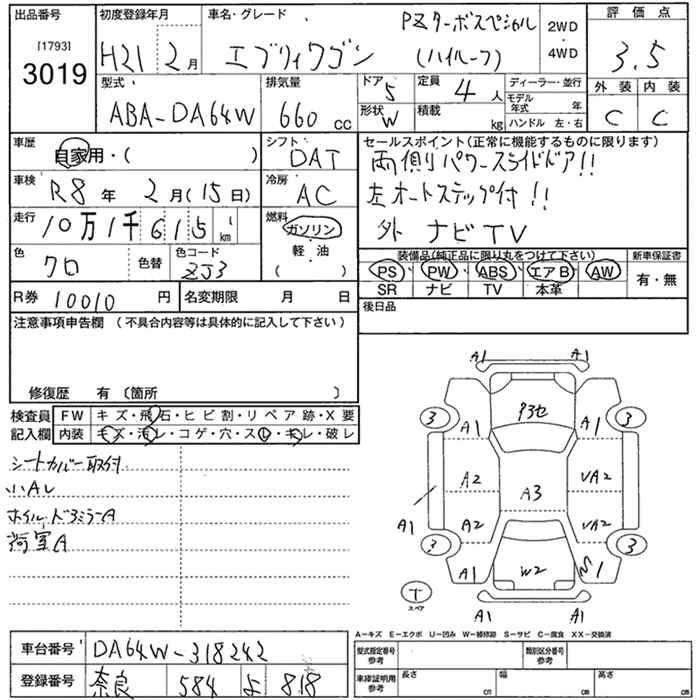 出品番号 初度登録年月 車名・グレード PZターボスペシャル 2WD 評価点
[1793] H21 2月 エブリィワゴン (ハイルーフ) 4WD 3.5
3019
型式 排気量 ドア 5 定員 4人 ディーラー・並行 外装 内装
ABA-DA64W 660cc 形状 W 積載 kg モデル年式 年 C C
ハンドル 左・右
車歴 自家用・( ) シフト DAT セールスポイント(正常に機能するものに限ります)
両側リパワースライドドア!!
車検 R8年 2月(15日) 冷房 AC 左オートステップ付!!
走行 10万1千615 km 燃料 ガソリン 外 ナビTV
軽・油
( )
色 クロ 色替 色コード ZJ3 装備品(純正品に限り丸をつけて下さい) 新車保証書
PS PW ABS エアB AW 有・無
SR ナビ TV 本革
R券 10010円 名変期限 月 日 後日品
注意事項申告欄 (不具合内容等は具体的に記入して下さい)
修復歴 有 〔箇所 〕
検査員 FW キズ・飛石・ヒビ割・リペア跡・X要
記入欄 内装 キズ・汚レ・コゲ・穴・スレ・キレ・破レ
シートカバー取付
小AU
ホイル、ドアミラーA
荷室A
A1 A1
3 タ3セ 3
A1 A1
A2 UA2
A3
A1 A2 UA2
3 3
A1 W2 1
T
スペア
A1 A1
A−キズ E−エクボ U−凹み W−補修跡 S−サビ C−腐食 XX−交換済
車台番号 DA64W-318242 型式指定番号 参考 類別区分番号 参考
登録番号 奈良 584 よ 818 車庫証明用 参考 長さ cm 幅 cm 高さ cm